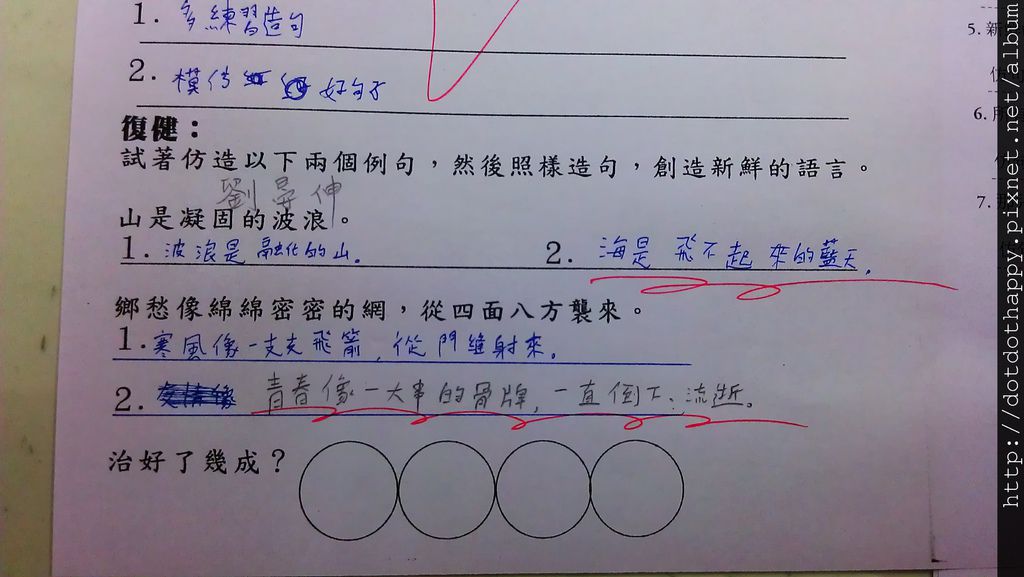 1. 多練習造句
2. 模仿 好句子
復健：
試著仿造以下兩個例句，然後照樣造句，創造新鮮的語言。
劉 伸
山是凝固的波浪。
1. 波浪是融化的山。 2. 海是飛不起來的藍天。
鄉愁像綿綿密密的網，從四面八方襲來。
1. 寒風像一支支飛箭，從門縫射來。
2. 青春像一大串的骨牌，一直倒下、流逝。
治好了幾成？
5. 新
6. 所
7.
http://dotdothappy.pixnet.net/album